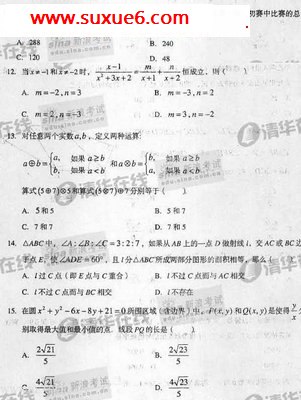 http://
www.suxue6.com
初赛中比赛的总
A. 288 B. 240
C. 120 D. 48
12. 当x≠-1和x≠-2时, (x-1)/(x²+3x+2) = m/(x+1) + n/(x+2) 恒成立, 则 ( )
A. m=-2, n=3 B. m=-3, n=2
C. m=2, n=-3 D. m=3, n=-2
13. 对任意两个实数a,b, 定义两种运算:
a⊕b={a, 如果 a≥b 和 a⊗b={b, 如果 a≥b
b, 如果 a<b a, 如果 a<b
算式(5⊕7)⊗5和算式(5⊗7)⊕7分别等于 ( )
A. 5和5 B. 5和7
C. 7和7 D. 7和5
14. △ABC中, ∠A:∠B:∠C=3:2:7, 如果从AB上的一点D做射线l, 交AC或BC边
于点E, 使∠ADE=60°, 且l分△ABC所成两部分图形的面积相等, 那么 (
A. l过C点 (即E点与C重合) B. l不过C点而与AC相交
C. l不过C点而与BC相交 D. l不存在
15. 在圆x²+y²-6x-8y+21=0所围区域 (含边界) 中, P(x,y)和Q(x,y)是使得 y/x
别取得最大值和最小值的点, 线段PQ的长是 ( )
A. 2√21/5 B. 2√23/5
C. 4√21/5 D. 4√23/5